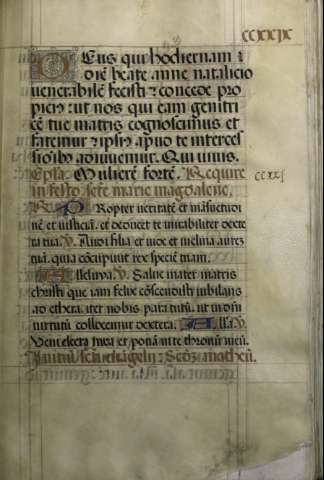 ccxxix
Deus qui hodiernam
diē beate anne natalicio
venerabilē fecisti concede pro
picius ut nos qui eam genitri
cē tue matris cognoscimus et
fatemur ipsi apud te interces
sionibus adiuvemur. Qui vivis.
Epła. Mulierē fortē. Require
in festo scte marie magdalene. ccxxj
Propter veritatē et māsuetudi
nē et iusticiā. et deducet te mirabiliter dexte
ra tua. V. Audi filia et vide et inclina aurez
tuā. quia cōcupivit rex speciē tuam.
Alleluya. V. Salve mater matris
christi que iam felix cōscendisti iubilans
ad ethera. iter nobis para tutū. ut
virtutū collocemur dextera. Alla. V.
Veni electa mea et ponā in te thronū meū.
Initiū sci evāgelij Scdz matheū.